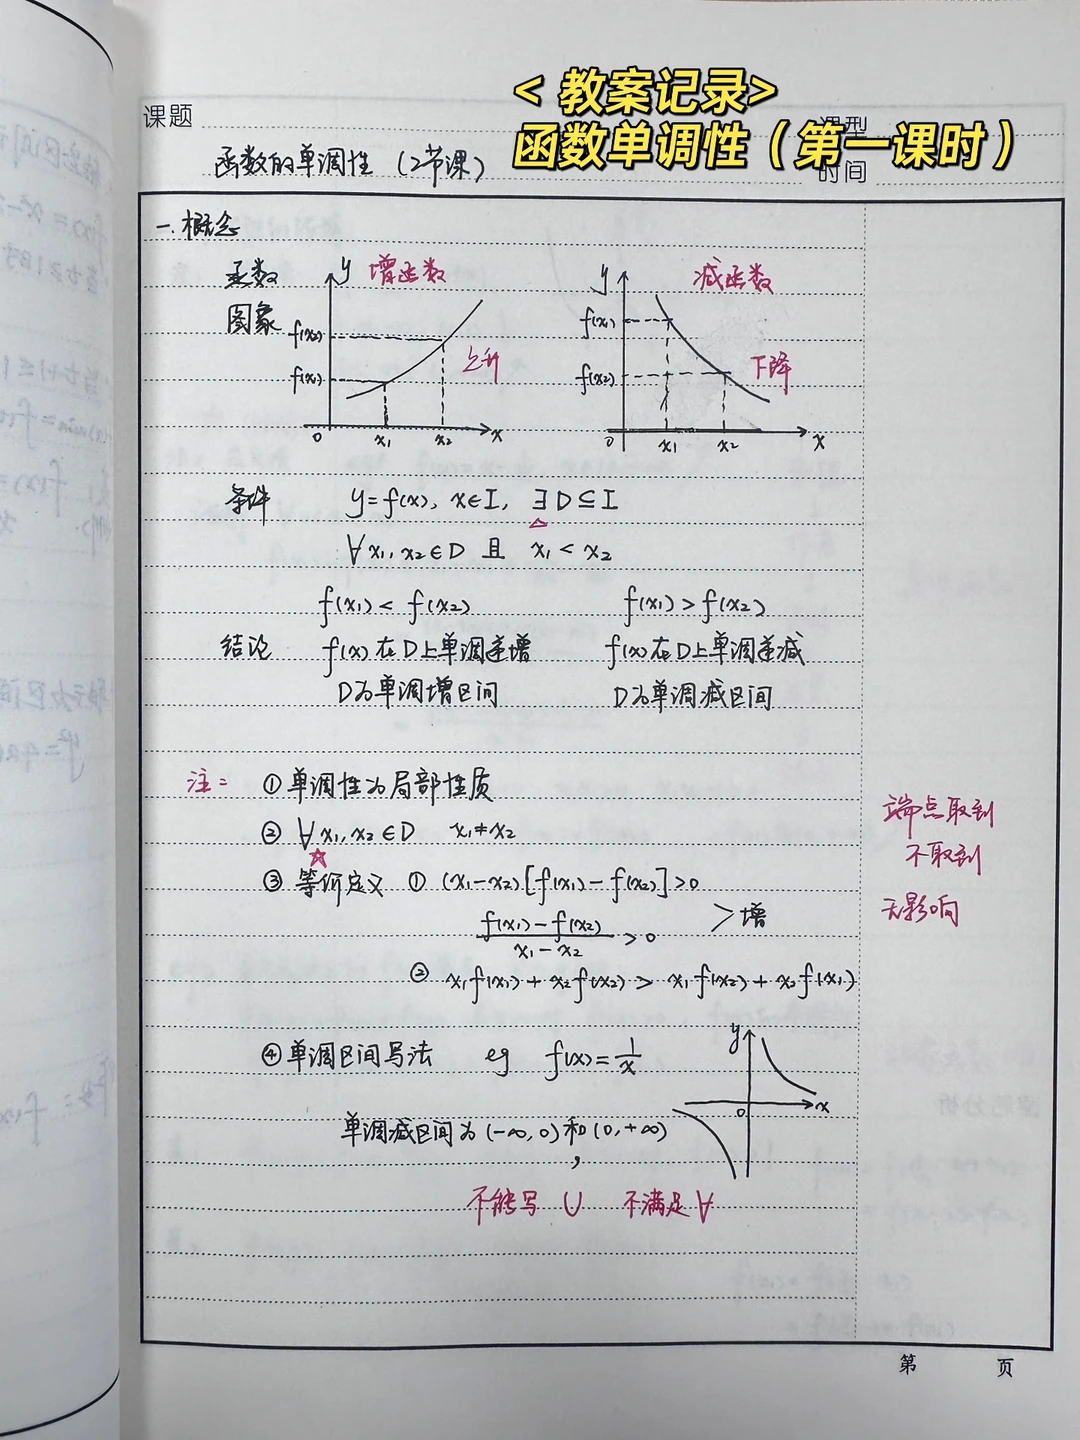 <教案记录>
函数单调性（第一课时）
课题
课型
时间
函数的单调性（2节课）
一.概念
函数
图象
y 增函数
f(x₂)
f(x₁)
上升
0 x₁ x₂ x
y 减函数
f(x₁)
f(x₂)
下降
0 x₁ x₂ x
条件 y=f(x), x∈I, ∃D⊆I
∀x₁,x₂∈D 且 x₁<x₂
f(x₁)<f(x₂) f(x₁)>f(x₂)
结论 f(x)在D上单调递增 f(x)在D上单调递减
D为单调增区间 D为单调减区间
注: ①单调性为局部性质
② ∀x₁,x₂∈D x₁≠x₂
③ 等价定义 ① (x₁-x₂)[f(x₁)-f(x₂)]>0
f(x₁)-f(x₂)/x₁-x₂ >0
>增
② x₁f(x₁)+x₂f(x₂)>x₁f(x₂)+x₂f(x₁)
④单调区间写法 eg f(x)=1/x
y
0 x
单调减区间为(-∞,0)和(0,+∞)
,
不能写 ∪ 不满足∀
端点取到
不取到
无影响
第 页